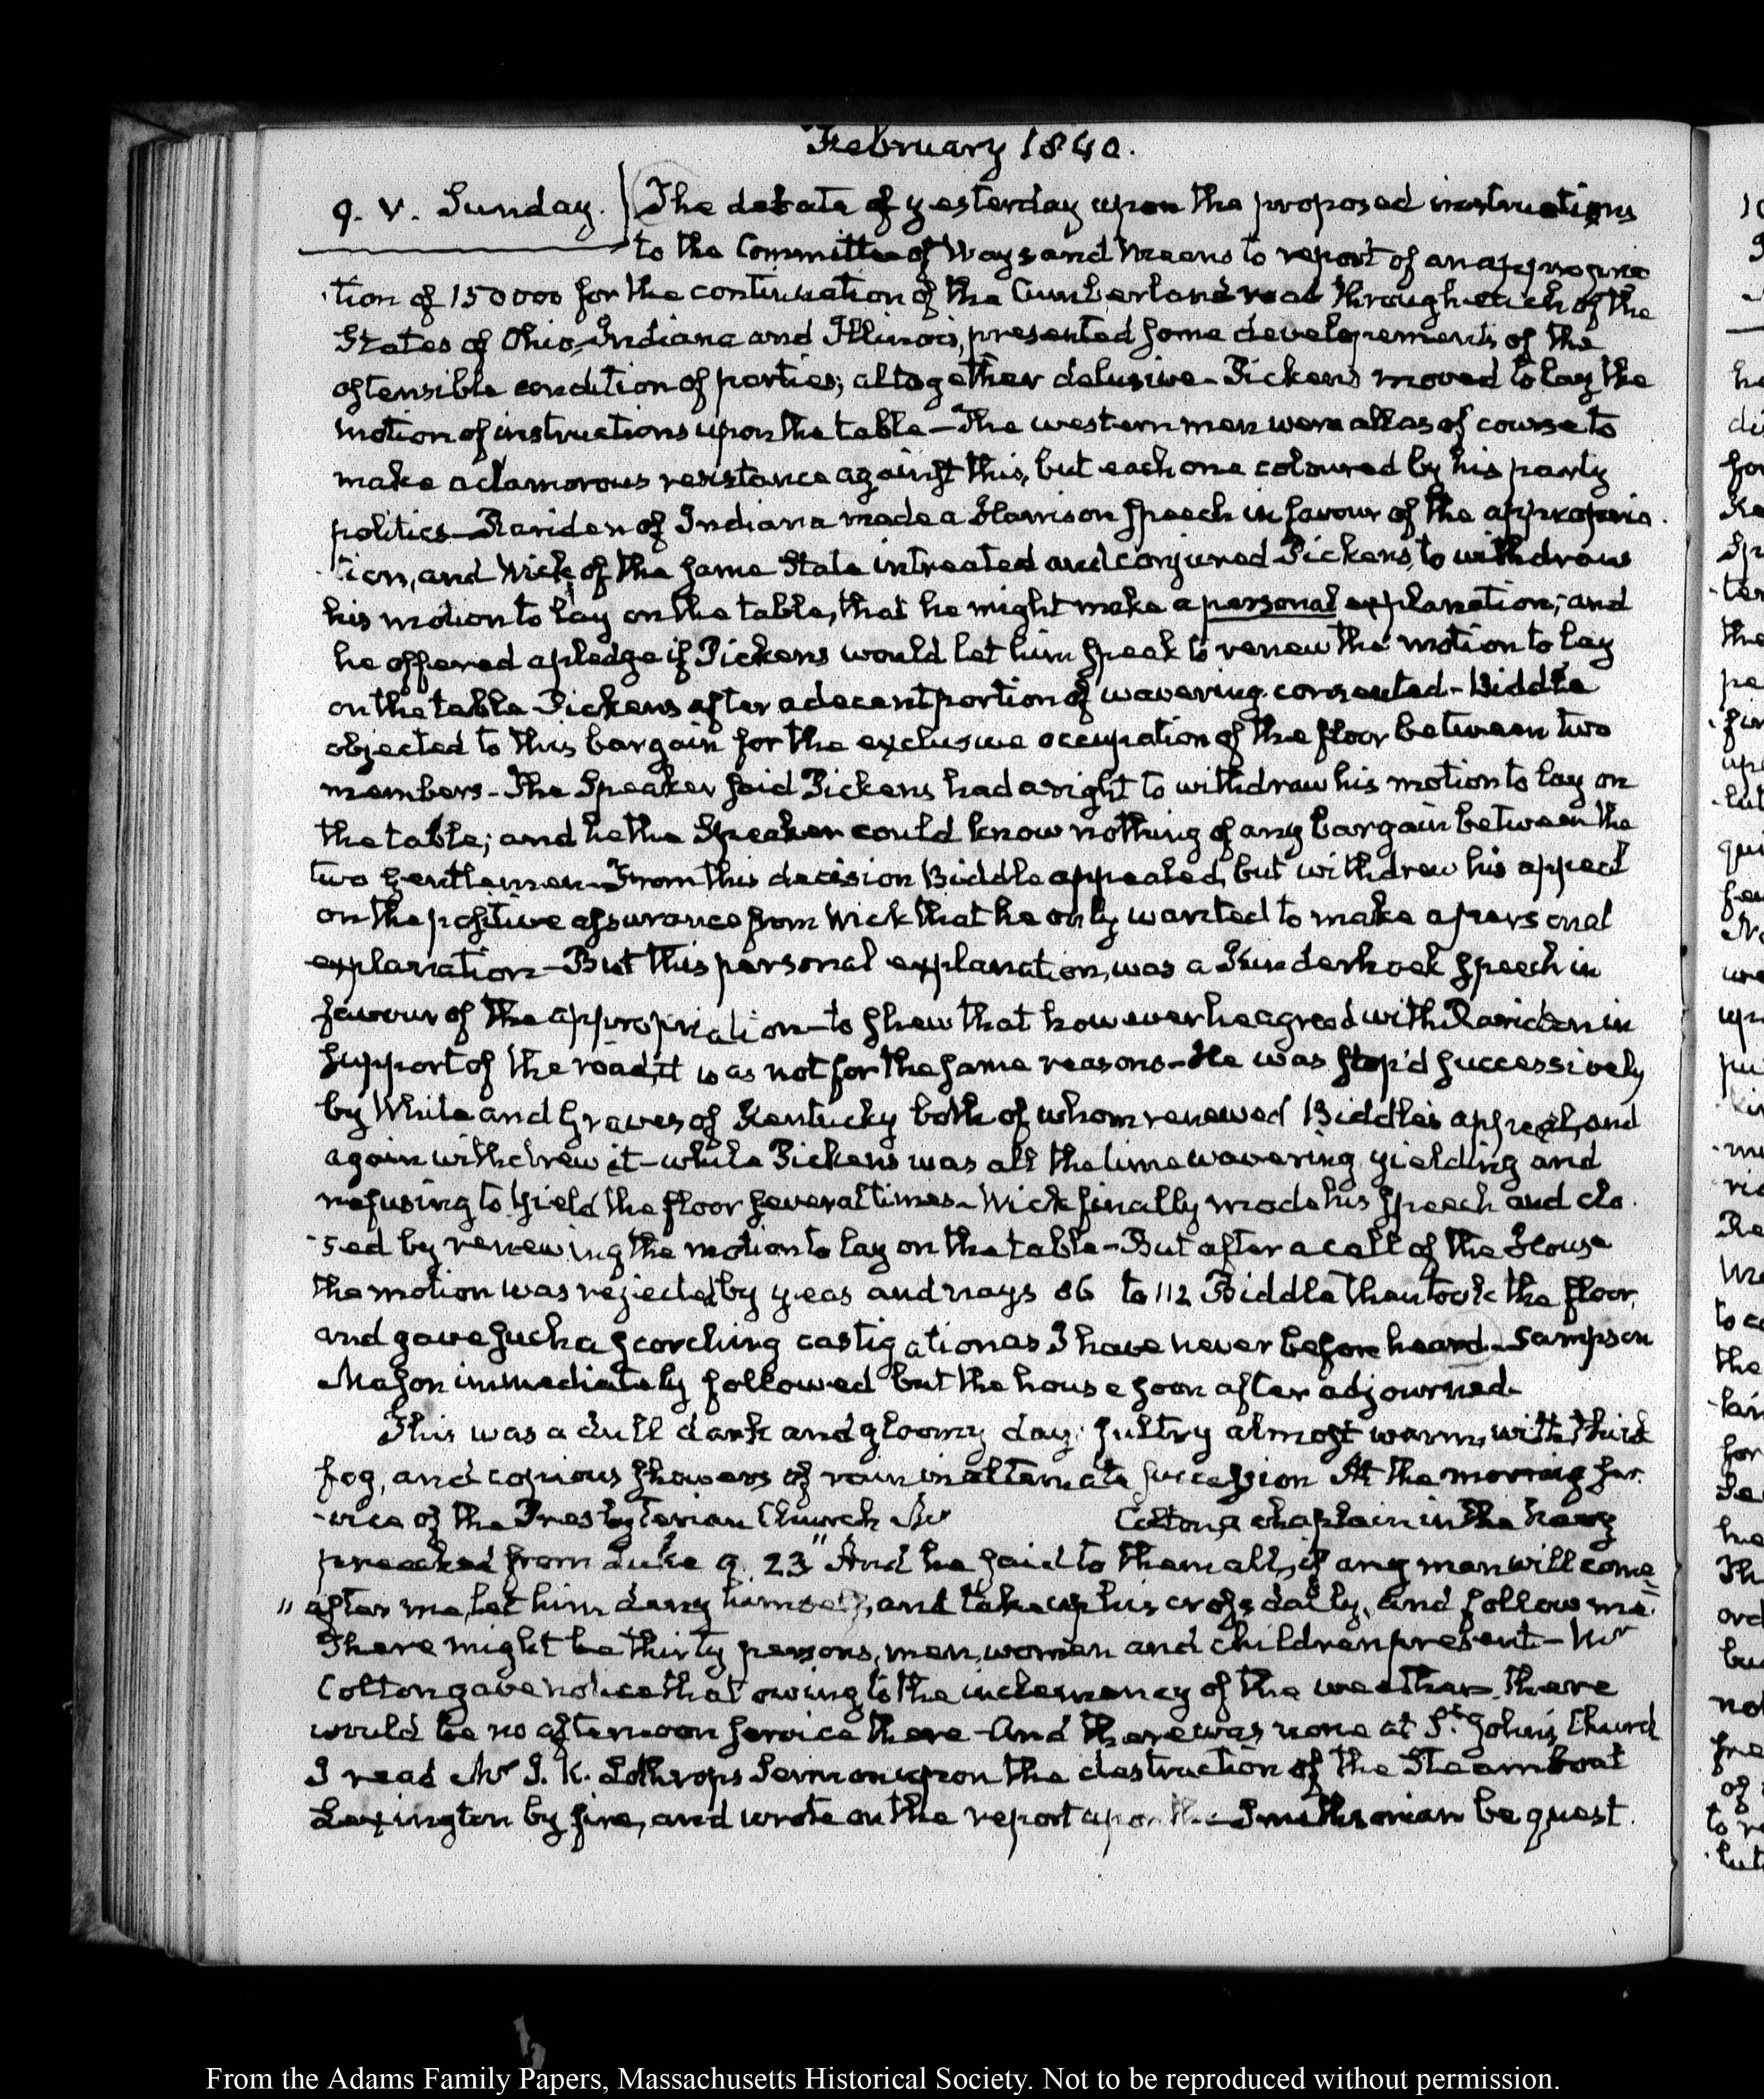 February 1840.
9. V. Sunday. The debate of yesterday upon the proposed instructions
to the Committee of Ways and Means to report of an appropria
tion of 150000 for the continuation of the Cumberland road through each of the
States of Ohio, Indiana and Illinois, presented some developements of the
ostensible condition of parties; altogether delusive - Pickens moved to lay the
motion of instructions upon the table - The western men were all as of course to
make a clamorous resistance against this, but each one coloured by his party
politics - Rariden of Indiana made a Harrison speech in favour of the appropria
tion, and Wick of the same State intreated and conjured Pickens, to withdraw
his motion to lay on the table, that he might make a personal explanation; and
he offered a pledge if Pickens would let him speak to renew the motion to lay
on the table - Pickens after a decent portion of wavering consented - Biddle
objected to this bargain for the exclusive occupation of the floor between two
members - The Speaker said Pickens had a right to withdraw his motion to lay on
the table; and he the Speaker could know nothing of any bargain between the
two Gentlemen - From this decision Biddle appealed, but withdrew his appeal
on the positive assurance from Wick that he only wanted to make a personal
explanation - But this personal explanation, was a Kinderhook speech in
favour of the appropriation - to shew that however he agreed with Rariden in
support of the road, it was not for the same reasons - He was stop'd successively
by White and Graves of Kentucky both of whom renewed Biddle's appeal, and
again withdrew it - while Pickens was all the time wavering, yielding and
refusing to yield the floor several times - Wick finally made his speech and clo
sed by renewing the motion to lay on the table - But after a call of the House
the motion was rejected by yeas and nays 86 to 112 Biddle then took the floor,
and gave such a scorching castigation as I have never before heard - Sampson
Mason immediately followed but the house soon after adjourned -
This was a dull dark and gloomy day, sultry almost warm, with thick
fog, and copious showers of rain in alternate succession At the morning ser
-vice of the Presbyterian Church Mr Colton, a chaplain in the Navy
preached from Luke 9. 23 "And he said to them all, if any man will come
" after me, let him deny himself, and take up his cross daily, and follow me"
There might be thirty persons, men, women and children present - Mr
Colton gave notice that owing to the inclemency of the weather, there
would be no afternoon service there - And there was none at St. John's Church
I read Mr S. K. Lothrop's Sermon upon the destruction of the Steamboat
Lexington by fire, and wrote on the report upon the Smithsonian bequest.
From the Adams Family Papers, Massachusetts Historical Society. Not to be reproduced without permission.